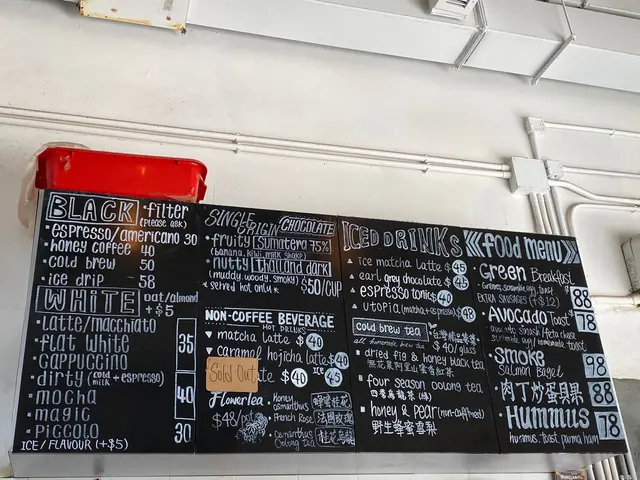 BLACK
• filter
(please ask)
• espresso/americano 30
• honey coffee 40
• cold brew 50
• ice drip 58
WHITE
oat/almond
+ $5
• latte/macchiato
• flat white
• cappuccino
35
• dirty (cold milk + espresso)
• mocha
• magic
40
• piccolo 30
ICE / FLAVOUR (+$5)
SINGLE ORIGIN CHOCOLATE
• fruity Sumatera 75%
(banana, kiwi, milk shake)
• nutty thailand dark
(muddy, woody, smoky)
* served hot only * $50/CUP
NON-COFFEE BEVERAGE
HOT DRINKS
▼ matcha latte $40
▼ caramel hojicha latte $40
Sold Out
te $40 ICE $45
Flower Tea
$48/pot
• Honey osmanthus
蜂蜜桂花
• French Rose
法國玫瑰
• Osmanthus Oolong Tea
桂花烏龍
ICED DRINKS
▲ ice matcha latte $45
▲ earl grey chocolate $45
▲ espresso tonics $40
▲ utopia (matcha + espresso) $48
cold brew tea
$40/glass
■ dried fig & honey black tea
■ four season oolong tea
四季烏龍茶 (綠)
■ honey & pear (non-caffeined)
野生蜂蜜雪梨
food menu
Green Breakfast
EXTRA SAUSAGES (+$12)
88
AVOCADO Toast
78
Smoke
Salmon Bagel
98
肉丁炒蛋貝果
88
Hummus
hummus, toast, parma ham
78